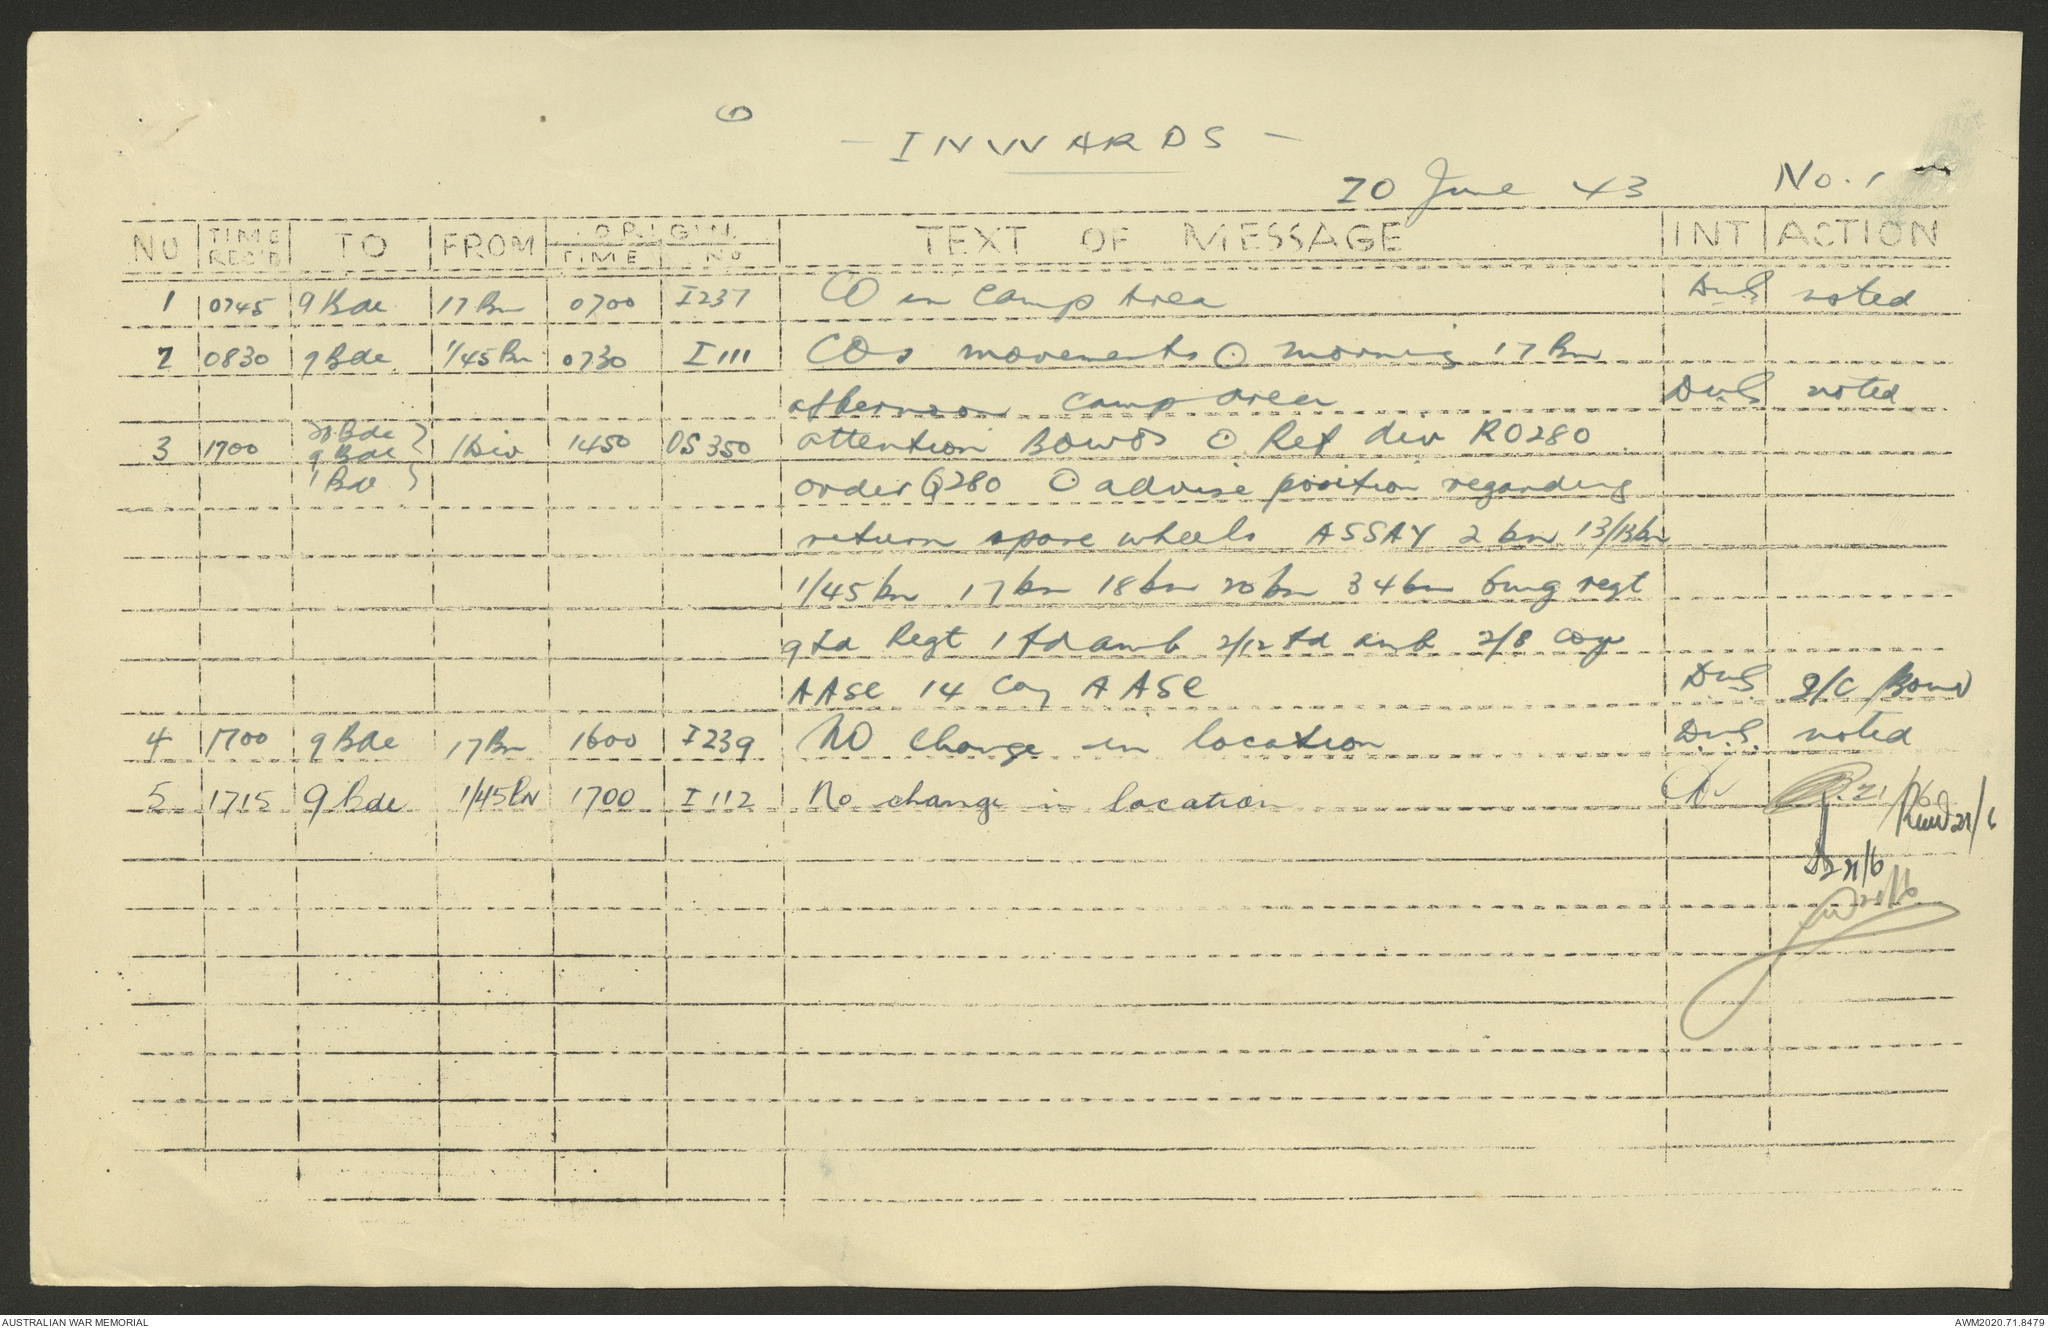 ①
- INWARDS -
20 June 43 No. 1
NO TIME REC'D TO FROM ORIGIN TIME NO TEXT OF MESSAGE INT ACTION
1 0745 9 Bde 17 Bn 0700 I237 CO in camp area DMS noted
2 0830 9 Bde 1/45 Bn 0730 I111 COs movements ⊙ morning 17 Bn
afternoon camp area DMS noted
3 1700 28 Bde 9 Bde 1 Bde } 1 Div 1450 OS350 attention BOWOs ⊙ Ref div RO280
order Q280 ⊙ advise position regarding
return spare wheels ASSAY 2 bn 13/33 bn
1/45 bn 17 bn 18 bn 20 bn 34 bn 6 mg regt
9 fd Regt 1 fd amb 2/12 fd amb 2/8 coy
AASC 14 Coy AASC DMS BOWO
4 1700 9 Bde 17 Bn 1600 I239 NO change in location DMS noted
5 1715 9 Bde 1/45 BN 1700 I112 No change in location 21/6
21/6
21/6
21/6
AUSTRALIAN WAR MEMORIAL AWM2020.71.8479